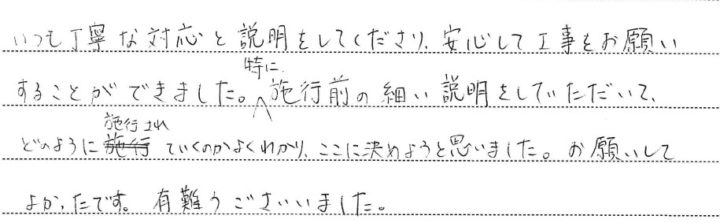 いつも丁寧な対応と説明をしてくださり、安心して工事をお願い
することができました。特に施行前の細い説明をしていただいて、
どのように施行されていくのかよくわかり、ここに決めようと思いました。お願いして
よかったです。有難うございました。